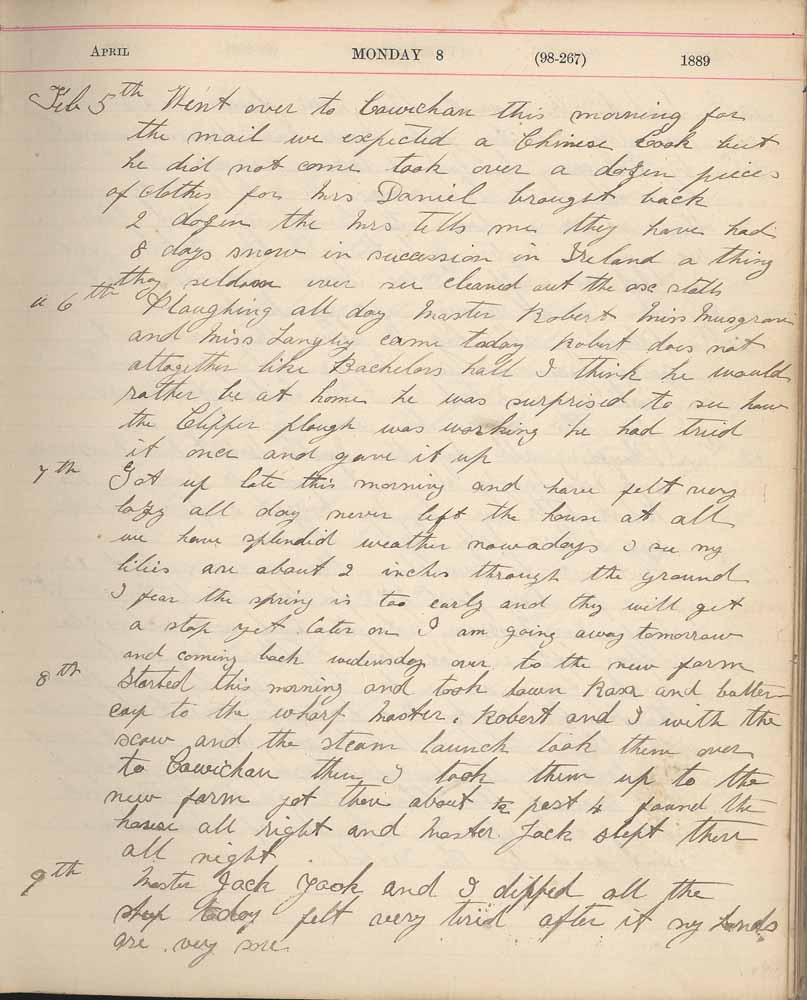 APRIL MONDAY 8 (98-267) 1889
Feb 5th Went over to Cowichan this morning for
the mail we expected a Chinese Cook but
he did not come took over a dozen pieces
of clothes for Mrs Daniel brought back
2 dozen the Mrs tells me they have had
8 days snow in succession in Ireland a thing
they seldom ever see cleaned out the oxe stalls
" 6th Ploughing all day Master Robert Miss Musgrave
and Miss Langley came today Robert does not
altogether like Bachelors hall I think he would
rather be at home he was surprised to see how
the Clipper plough was working he had tried
it once and gave it up
7th Got up late this morning and have felt very
lazy all day never left the house at all
we have splendid weather nowadays I see my
lilies are about 2 inches through the ground
I fear the spring is too early and they will get
a stop yet later on I am going away tomorrow
and coming back wedensday over to the new farm
8th Started this morning and took down Rasa and butter
cup to the wharf Master Robert and I with the
scow and the steam launch took them over
to Cowichan then I took them up to the
new farm got there about ½ past 4 found the
house all right and Master Jack slept there
all night
9th Master Jack and I dipped all the
sheep today felt very tried after it my hands
are very sore